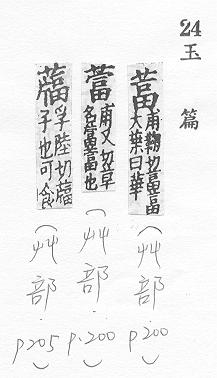 24
玉篇
葍 甫鞠切葍
大葉白華
(艸部. p200)
甫又切草
名葍也
(艸部. p.200)
孚陸切
子也可食
(艸部. p205)